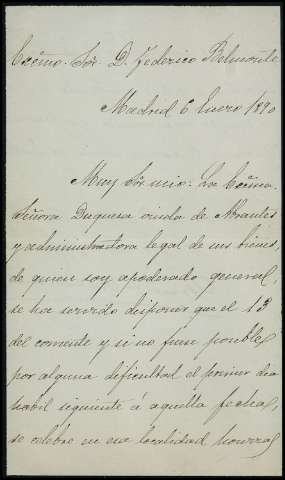 Excmo. Sor. D. Federico Belmonte
Madrid 6 Enero 1890
Muy Sor mio: La Excma.
Señora Duquesa viuda de Abrantes
y administradora legal de sus bienes,
de quien soy apoderado general,
se ha servido disponer que el 13
del corriente y si no fuera posible
por alguna dificultad el primer dia
habil siguiente á aquella fecha,
se celebre en esa localidad